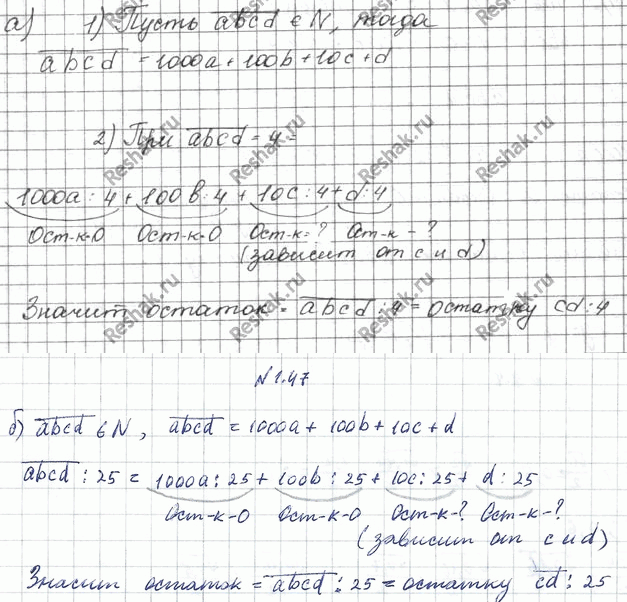 а) 1) Пусть abcd ∈ N, тогда
abcd = 1000a + 100b + 10c + d
2) При abcd = 4 =
1000a : 4 + 100b : 4 + 10c : 4 + d : 4
Ост-к-0 Ост-к-0 Ост-к=? Ост-к-?
(зависит от c и d)
Значит остаток = abcd : 4 = остатку cd : 4
N 1.47
б) abcd ∈ N, abcd = 1000a + 100b + 10c + d
abcd : 25 = 1000a : 25 + 100b : 25 + 10c : 25 + d : 25
Ост-к-0 Ост-к-0 Ост-к-? Ост-к-?
(зависит от c и d)
Значит остаток = abcd : 25 = остатку cd : 25
Reshak.ru
Reshak.ru
Reshak.ru
Reshak.ru
Reshak.ru
Reshak.ru
Reshak.ru
Reshak.ru